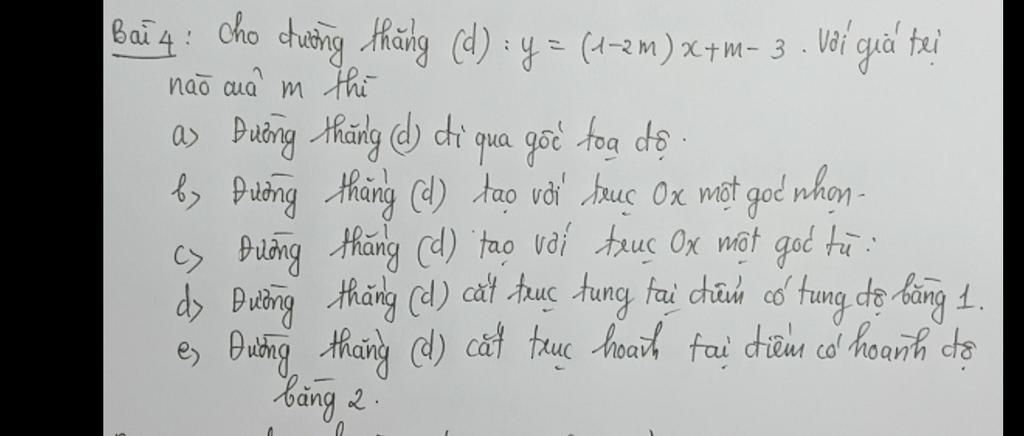 Bài 4: Cho đường thẳng (d): y = (1-2m)x+m-3. Với giá trị
nào của m thì
a) Đường thẳng (d) đi qua gốc toạ độ.
b) Đường thẳng (d) tạo với trục Ox một góc nhọn.
c) Đường thẳng (d) tạo với trục Ox một góc tù.
d) Đường thẳng (d) cắt trục tung tại điểm có tung độ bằng 1.
e) Đường thẳng (d) cắt trục hoành tại điểm có hoành độ
bằng 2.